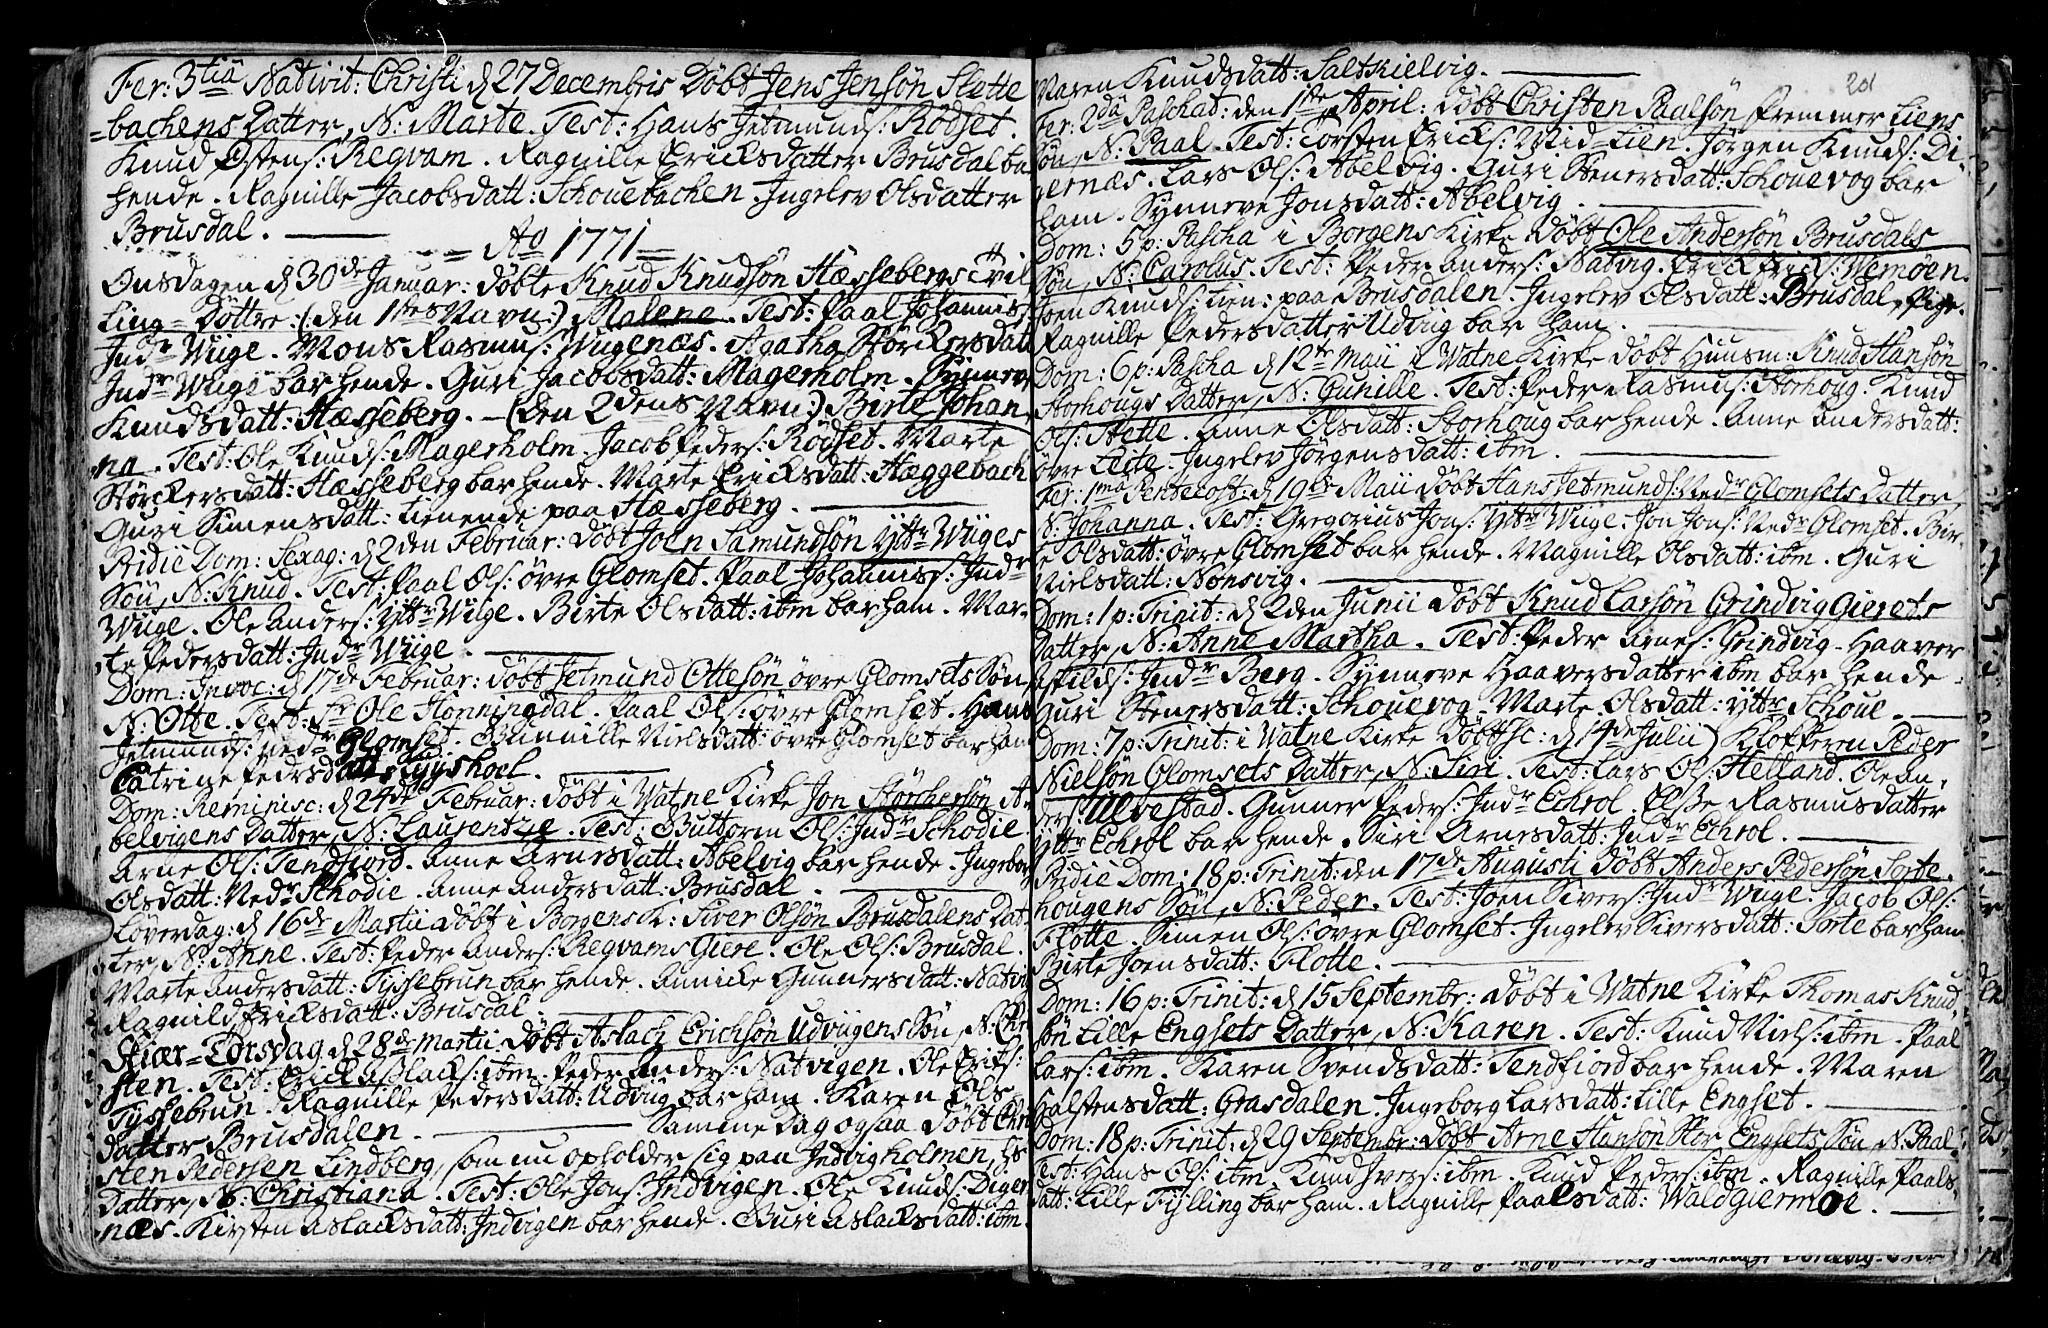 Fer: 3tia Nativit: Christi d 27 Decembris Döbt Jens Jensön Slette
=bachens Datter, N: Marte. Test: Hans Jetmunds: Rödset.
Knud Østens: Reqvam. Ragnille Ericksdatter Brusdal ba
hende. Ragnille Jacobsdatt: Schouebachen. Ingelev Olsdatter
Brusdal.
= Ao 1771 =
Onsdagen d 30de Januar: döbte Knud Knudsön Hæssebergs Tvil
ling-Döttre: (den 1stes Navn:) Malene. Test: Paal Johannis,
Indr Wiige. Mons Rasmus: Wugenæs. Agatha Störckersdatt
Indr Wuge bar hende. Guri Jacobsdatt: Magerholm. Synneve
Knudsdatt: Hæsseberg. - (den 2dens Navn:) Birte Johan
na. Test: Ole Knuds: Magerholm. Jacob Peders: Rödset. Marte
Störckersdatt: Hæsseberg bar hende. Marte Ericksdatt: Hæggebach
Guri Simensdatt: tienende paa Hæsseberg.
Pridie Dom: Sexag: d 2den Februar: döbt Joen Samundsön Yttr Wiiges
Sön, N: Knud. Test: Paal Ols: övre Glomset. Paal Johanniss: Indr
Wuge. Ole Anders: Yttr Wige. Birte Olsdatt: ibm bar ham. Mar-
te Pedersdatt: Indr Wiige.
Dom: Invoc: d 17de Februar: döbt Jetmund Ottesön övre Glomsets Sön
N: Otte. Test: Sr Ole Honningdal. Paal Ols: övre Glomset. Hans
Jetmunds: Nedr Glomset. Gunnille Nielsdatt: övre Glomset bar ham
Catrine Pedersdatt:
Dom: Reminisc: d 24de Februar: döbt i Watne Kirke Jon Störckersön A-
belvigens Datter, N: Laurentze. Test: Guttorm Ols: Indr Schodie.
Arne Ols: Tendfiord. Anne Arnesdatt: Abelvig bar hende. Ingebor
Olsdatt: Nedr Schodie. Anne Andersdatt: Brusdal.
Löverdag: d 16de Martii döbt i Borgens K: Siver Olsön Brusdalens Dat
ter, N: Anne. Test: Peder Anders: Reqvams Giere. Ole Ols: Brusdal.
Marte Andersdatt: Tyssebrun bar hende. Annicke Gunnersdatt: Natvi
Ragnild Ericksdatt: Brusdal
Skiær=Torsdag d 28de Martii döbt Aslack Ericksön Udviigens Sön, N: Chri
sten. Test: Erick Aslacks: ibm. Peder Anders: Natvigen. Ole Ericks:
Tyssebrun. Ragnille Pedersdatt: Udviig bar ham. Karen Ols
datter Brusdalen. Samme dag ogsaa döbt Chri
sten Pedersen Lindberg, som nu opholder sig paa Indvigholmen, hs
Datter, N: Christiana. Test: Ole Jons: Indvigen. Ole Knuds: Diger
næs. Kirsten Aslacksdatt: Indvigen bar hende. Guri Aslacksdatt: ibm.
201
Maren Knudsdatt: Saltkielvig.
Fer: 2da Paschat: den 1ste April: döbt Christen Paalsön Fremmer Liens
Sön, N: Paal. Test: Torsten Ericks: Mid=Lien. Jörgen Knuds: Di
gernæs. Lars Ols: Abelvig. Guri Stenersdatt: Schouevog bar
ham. Synneve Jonsdatt: Abelvig.
Dom: 5 p: Pascha i Borgens Kirke döbt Ole Andersön Brusdals
Sön, N: Carolus. Test: Peder Anders: Natvig. Erick Ericks: Wemöen.
Joen Knuds: Lien: paa Brusdalen. Ingelev Olsdatt: Brusdal, Pige.
Ragnille Pedersdatter Udviig bar ham.
Dom: 6 p: Pascha d 12te Maii i Watne Kirke döbt Huusm: Knud Hansön
Storhougs Datter, N: Gunille. Test: Peder Rasmus: Storhoug. Knud
Ols: Slette. Anne Olsdatt: Storhoug bar hende. Anne Andersdatt:
övre Leite. Ingelev Jörgensdatt: ibm.
Fer: 1ma Pentecost: d 19de Maii döbt Hans Jetmunds: Nedr Glomsets Datter,
N: Johanna. Test: Gregorius Jons: Yttr Wiige. Jon Jons: Nedr Glomset. Bir-
te Olsdatt: övre Glomset bar hende. Magnille Olsdatt: ibm. Guri
Nielsdatt: Honsvig.
Dom: 1 p: Trinit: d 2den Junii döbt Knud Larsön Grindvig Gierets
Datter, N: Anne Martha. Test: Peder Arnes: Grindvig. Haaver
Indr Berg. Synneve Haaversdatter ibm bar hende.
Guri Stenersdatt: Schouevog. Marte Olsdatt: Yttr Schoue.
Dom: 7 p: Trinit: i Watne Kirke döbt (sc: d 14de Julii) Klokkeren Peder
Nielsön Glomsets Datter, N: Siri. Test: Lars Ols: Helland. Ole An-
ders: Ulvestad. Gunner Peders: Indr Echrol. Elsse Rasmusdatter
Yttr Echrol bar hende. Siri Arnesdatt: Indr Echrol.
Pridie Dom: 18 p: Trinit: den 17de Augusti döbt Anders Pedersön Sorte-
hougens Sön, N: Peder. Test: Joen Sivers: Indr Wuge. Jacob Ols:
Flotte. Simen Ols: övre Glomset. Ingelev Siversdatt: Sorte bar ham
Birte Joensdatt: Flotte.
Dom: 16 p: Trinit: d 15 Septembr: döbt i Watne Kirke Thomas Knud-
sön Lille Engsets Datter, N: Karen. Test: Knud Niels: ibm. Paal
Lars: ibm. Karen Svendsdatt: Tendfiord bar hende. Maren
Halstensdatt: Grasdalen. Ingeborg Larsdatt: Lille Engset.
Dom: 18 p: Trinit, d 29 Septembr: döbt Arne Hansön Stor Engsets Sön, N: Paal.
Test: Hans Ols: ibm. Knud Ivers: ibm. Knud Peders: ibm. Ragnille Paals-
datt: Lille Fylling bar ham. Ragnille Paalsdatt: Waldgiermoe.